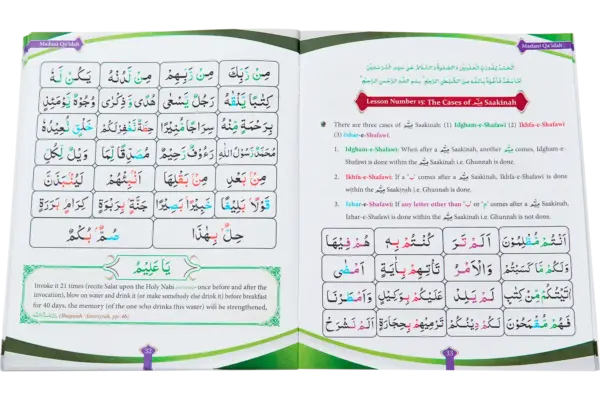 Madani Qa'idah
مِنْ رَّبِّكَ مِنْ رَّبِّهِمْ مِنْ لَّدُنْهُ يَكُنْ لَّهٗ
كِتٰبًا يَّلْقٰىهُ رَجُلٌ يَّسْعٰى هُدًى وَّذِكْرٰى وُجُوْهٌ يَّوْمَئِذٍ
بِرَحْمَةٍ مِّنْهُ سِرَاجًا مُّنِيْرًا حِطَّةٌ نَّغْفِرْ لَكُمْ خَلْقٍ نُّعِيْدُهٗ
مُحَمَّدٌ رَّسُوْلُ اللهِ رَءُوْفٌ رَّحِيْمٌ مُصَدِّقًا لِّمَا وَيْلٌ لِّكُلِّ
مِنْۢ بَعْدِ مِنْۢ بَقْلِهَا اَنْۢبِئْهُمْ لَيُنْۢبَذَنَّ
قَوْلًاۢ بَلِيْغًا خَبِيْرًاۢ بَصِيْرًا جَنَّةٍۭ بِرَبْوَةٍ كِرَامٍۭ بَرَرَةٍ
حِلٌّۢ بِهٰذَا صُمٌّۢ بُكْمٌ
يَا عَلِيْمُ
Invoke it 21 times (recite Salat upon the Holy Nabi once before and after the
invocation), blow on water and drink it (or make somebody else drink it) before breakfast
for 40 days, the memory (of the one who drinks this water) will be strengthened,
32
Madani Qa'idah
اَلْحَمْدُ لِلّٰهِ رَبِّ الْعٰلَمِيْنَ وَالصَّلٰوةُ وَالسَّلَامُ عَلٰى سَيِّدِ الْمُرْسَلِيْنَ
اَمَّا بَعْدُ فَاَعُوْذُ بِاللهِ مِنَ الشَّيْطٰنِ الرَّجِيْمِ بِسْمِ اللهِ الرَّحْمٰنِ الرَّحِيْمِ
Lesson Number 15: The Cases of مِيْم Saakinah
There are three cases of مِيْم Saakinah: (1) Idgham-e-Shafawi (2) Ikhfa-e-Shafawi
(3) Izhar-e-Shafawi.
1. Idgham-e-Shafawi: When after a مِيْم Saakinah, another مِيْم comes, Idgham-e-
Shafawi is done within the مِيْم Saakinah i.e. Ghunnah is done.
2. Ikhfa-e-Shafawi: If a "ب" comes after a مِيْم Saakinah, Ikhfa-e-Shafawi is done
within the مِيْم Saakinah i.e. Ghunnah is done.
3. Izhar-e-Shafawi: If any letter other than "ب" or "م" comes after a مِيْم Saakinah,
Izhar-e-Shafawi is done within the مِيْم Saakinah i.e. Ghunnah is not done.
اَنْتُمْ مُّظْلِمُوْنَ اَلَمْ تَرَ كُنْتُمْ بِهٖ هُمْ فِيْهَا
وَلَكُمْ مَّا كَسَبْتُمْ وَالْاَمْرُ تَاْتِهِمْ بِاٰيَةٍ اَمْضٰى
اٰتَيْتُكُمْ مِّنْ كِتٰبٍ لَمْ يَلِدْ عَلَيْكُمْ بِوَكِيْلٍ وَاَمْطَرْنَا
فَهُمْ مُّقْمَحُوْنَ لَكُمْ دِيْنُكُمْ تَرْمِيْهِمْ بِحِجَارَةٍ اَلَمْ نَشْرَحْ
33